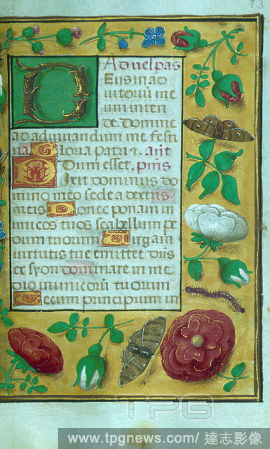 Ad vespas
Deus in ad
iutoriu me
um inten
de domine
ad adiuuandum me festi
na Gloria patri et ant
Dum esset. psms
Dixit dominus do
mino meo sede a dextris
meis Donec ponam in
imicos tuos scabellum pe
dum tuorum Virgam
uirtutis tue emittet dn̄s
ex syon dominare in me
dio inimicorum tuorum
Tecum principium in
TPG
www.tpgnews.com/ 達志影像